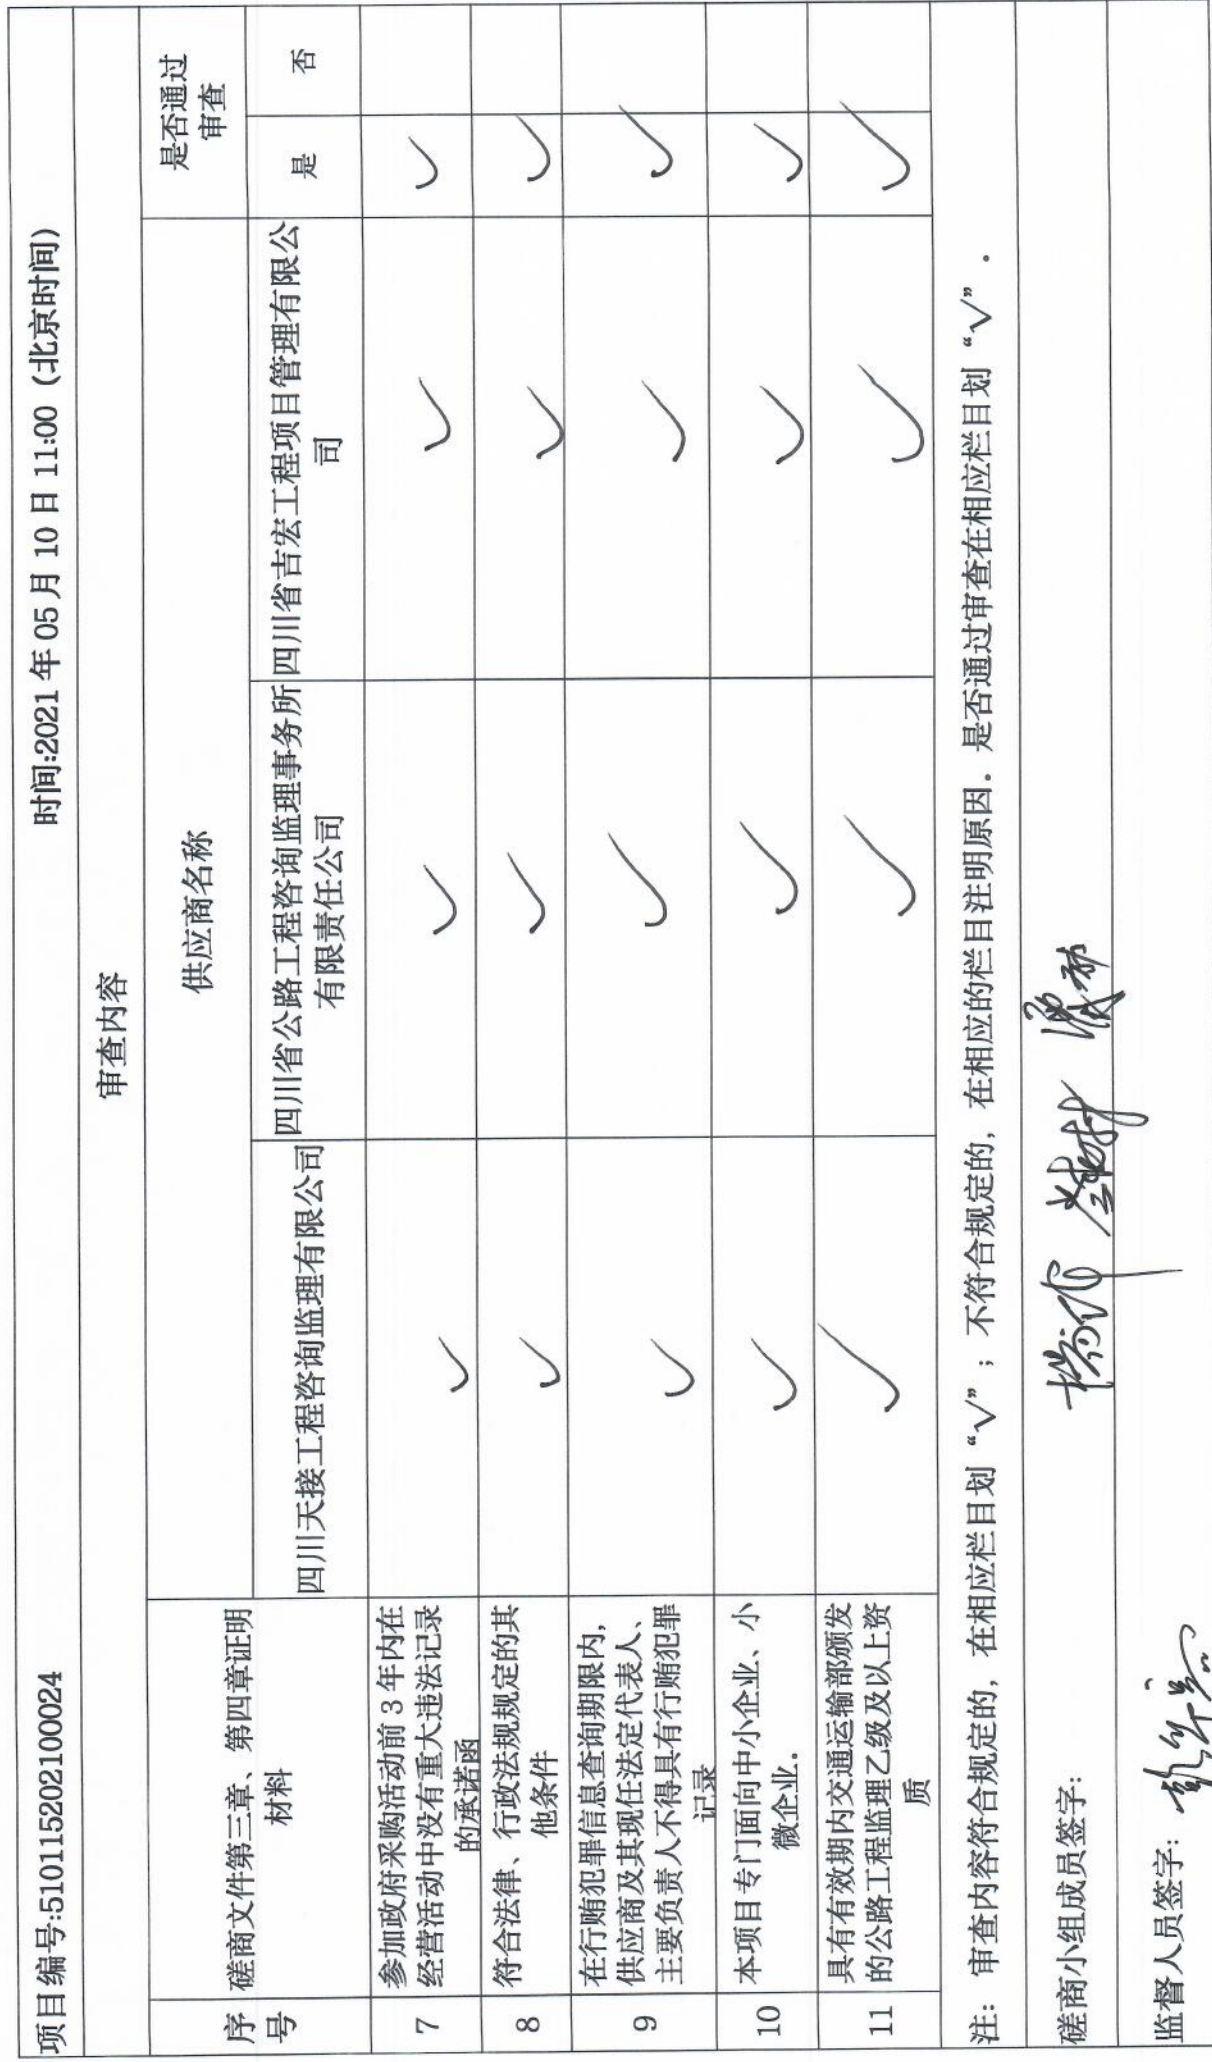 项目编号:510115202100024 时间:2021 年 05 月 10 日 11:00（北京时间）
审查内容
序号 磋商文件第三章、第四章证明材料 供应商名称 是否通过审查
四川天接工程咨询监理有限公司 四川省公路工程咨询监理事务所有限责任公司 四川省吉宏工程项目管理有限公司 是 否
7 参加政府采购活动前 3 年内在经营活动中没有重大违法记录的承诺函 √ √ √ √
8 符合法律、行政法规规定的其他条件 √ √ √ √
9 在行贿犯罪信息查询期限内,供应商及其现任法定代表人、主要负责人不得具有行贿犯罪记录 √ √ √ √
10 本项目专门面向中小企业、小微企业. √ √ √ √
11 具有有效期内交通运输部颁发的公路工程监理乙级及以上资质 √ √ √ √
注： 审查内容符合规定的，在相应栏目划“√”；不符合规定的，在相应的栏目注明原因．是否通过审查在相应栏目划“√”．
磋商小组成员签字:
监督人员签字: